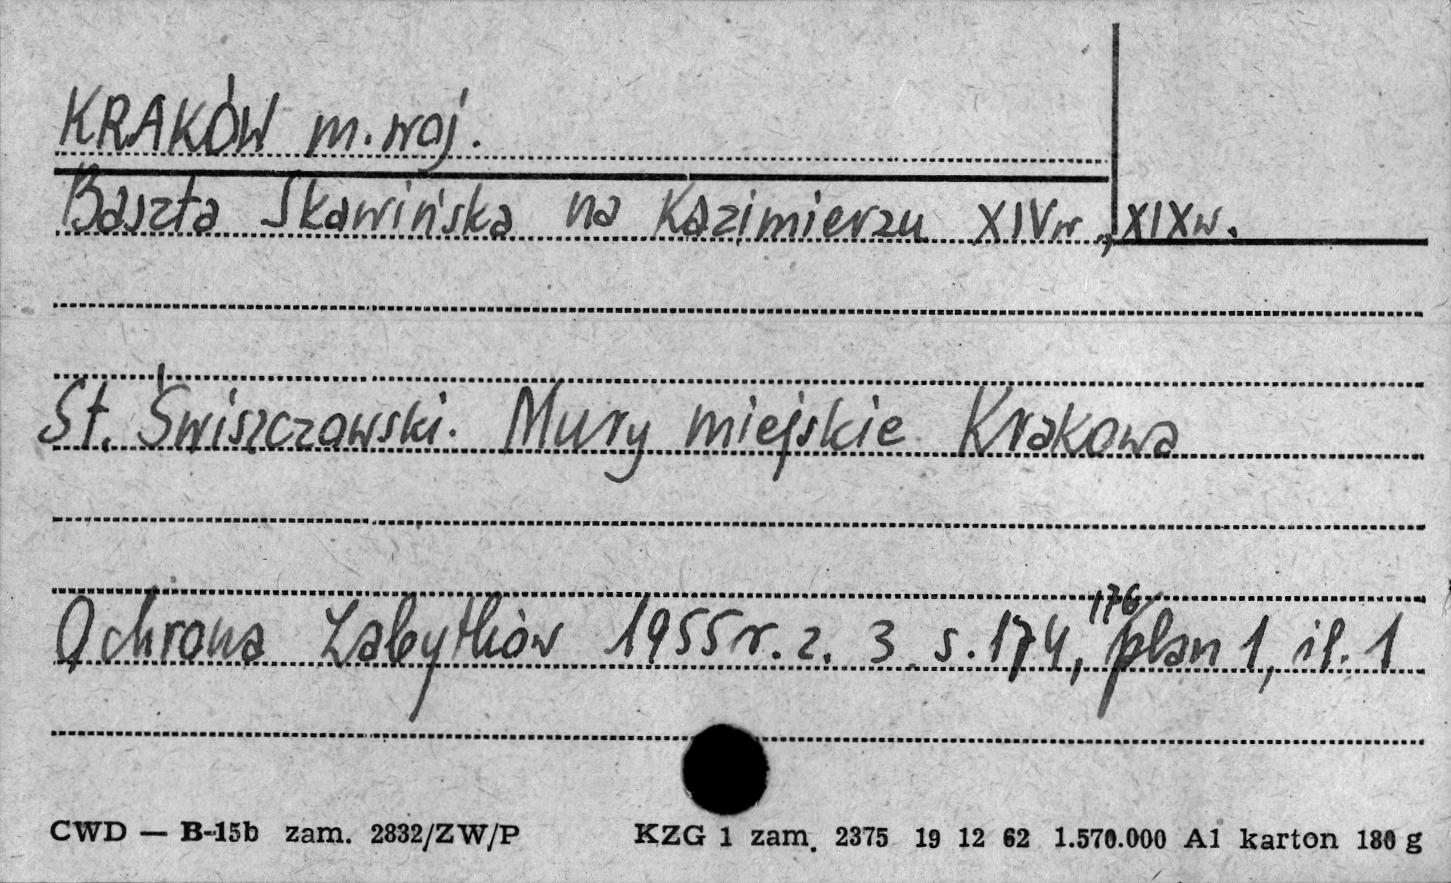 KRAKÓW m. woj.
Baszta Skawińska na Kazimierzu XIVw., XIXw.
St. Świszczowski. Mury miejskie Krakowa
Ochrona Zabytków 1955 r. z. 3 s. 174, 176 plan 1, il. 1
CWD — B-15b zam. 2832/ZW/P KZG 1 zam. 2375 19 12 62 1.570.000 A1 karton 180 g